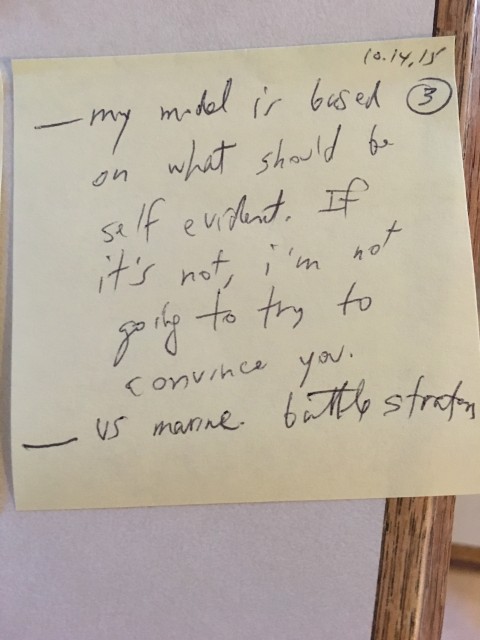 10.14.15
— my model is based ③
on what should be
self evident. If
it's not, i'm not
going to try to
convince you.
— US marine. battle